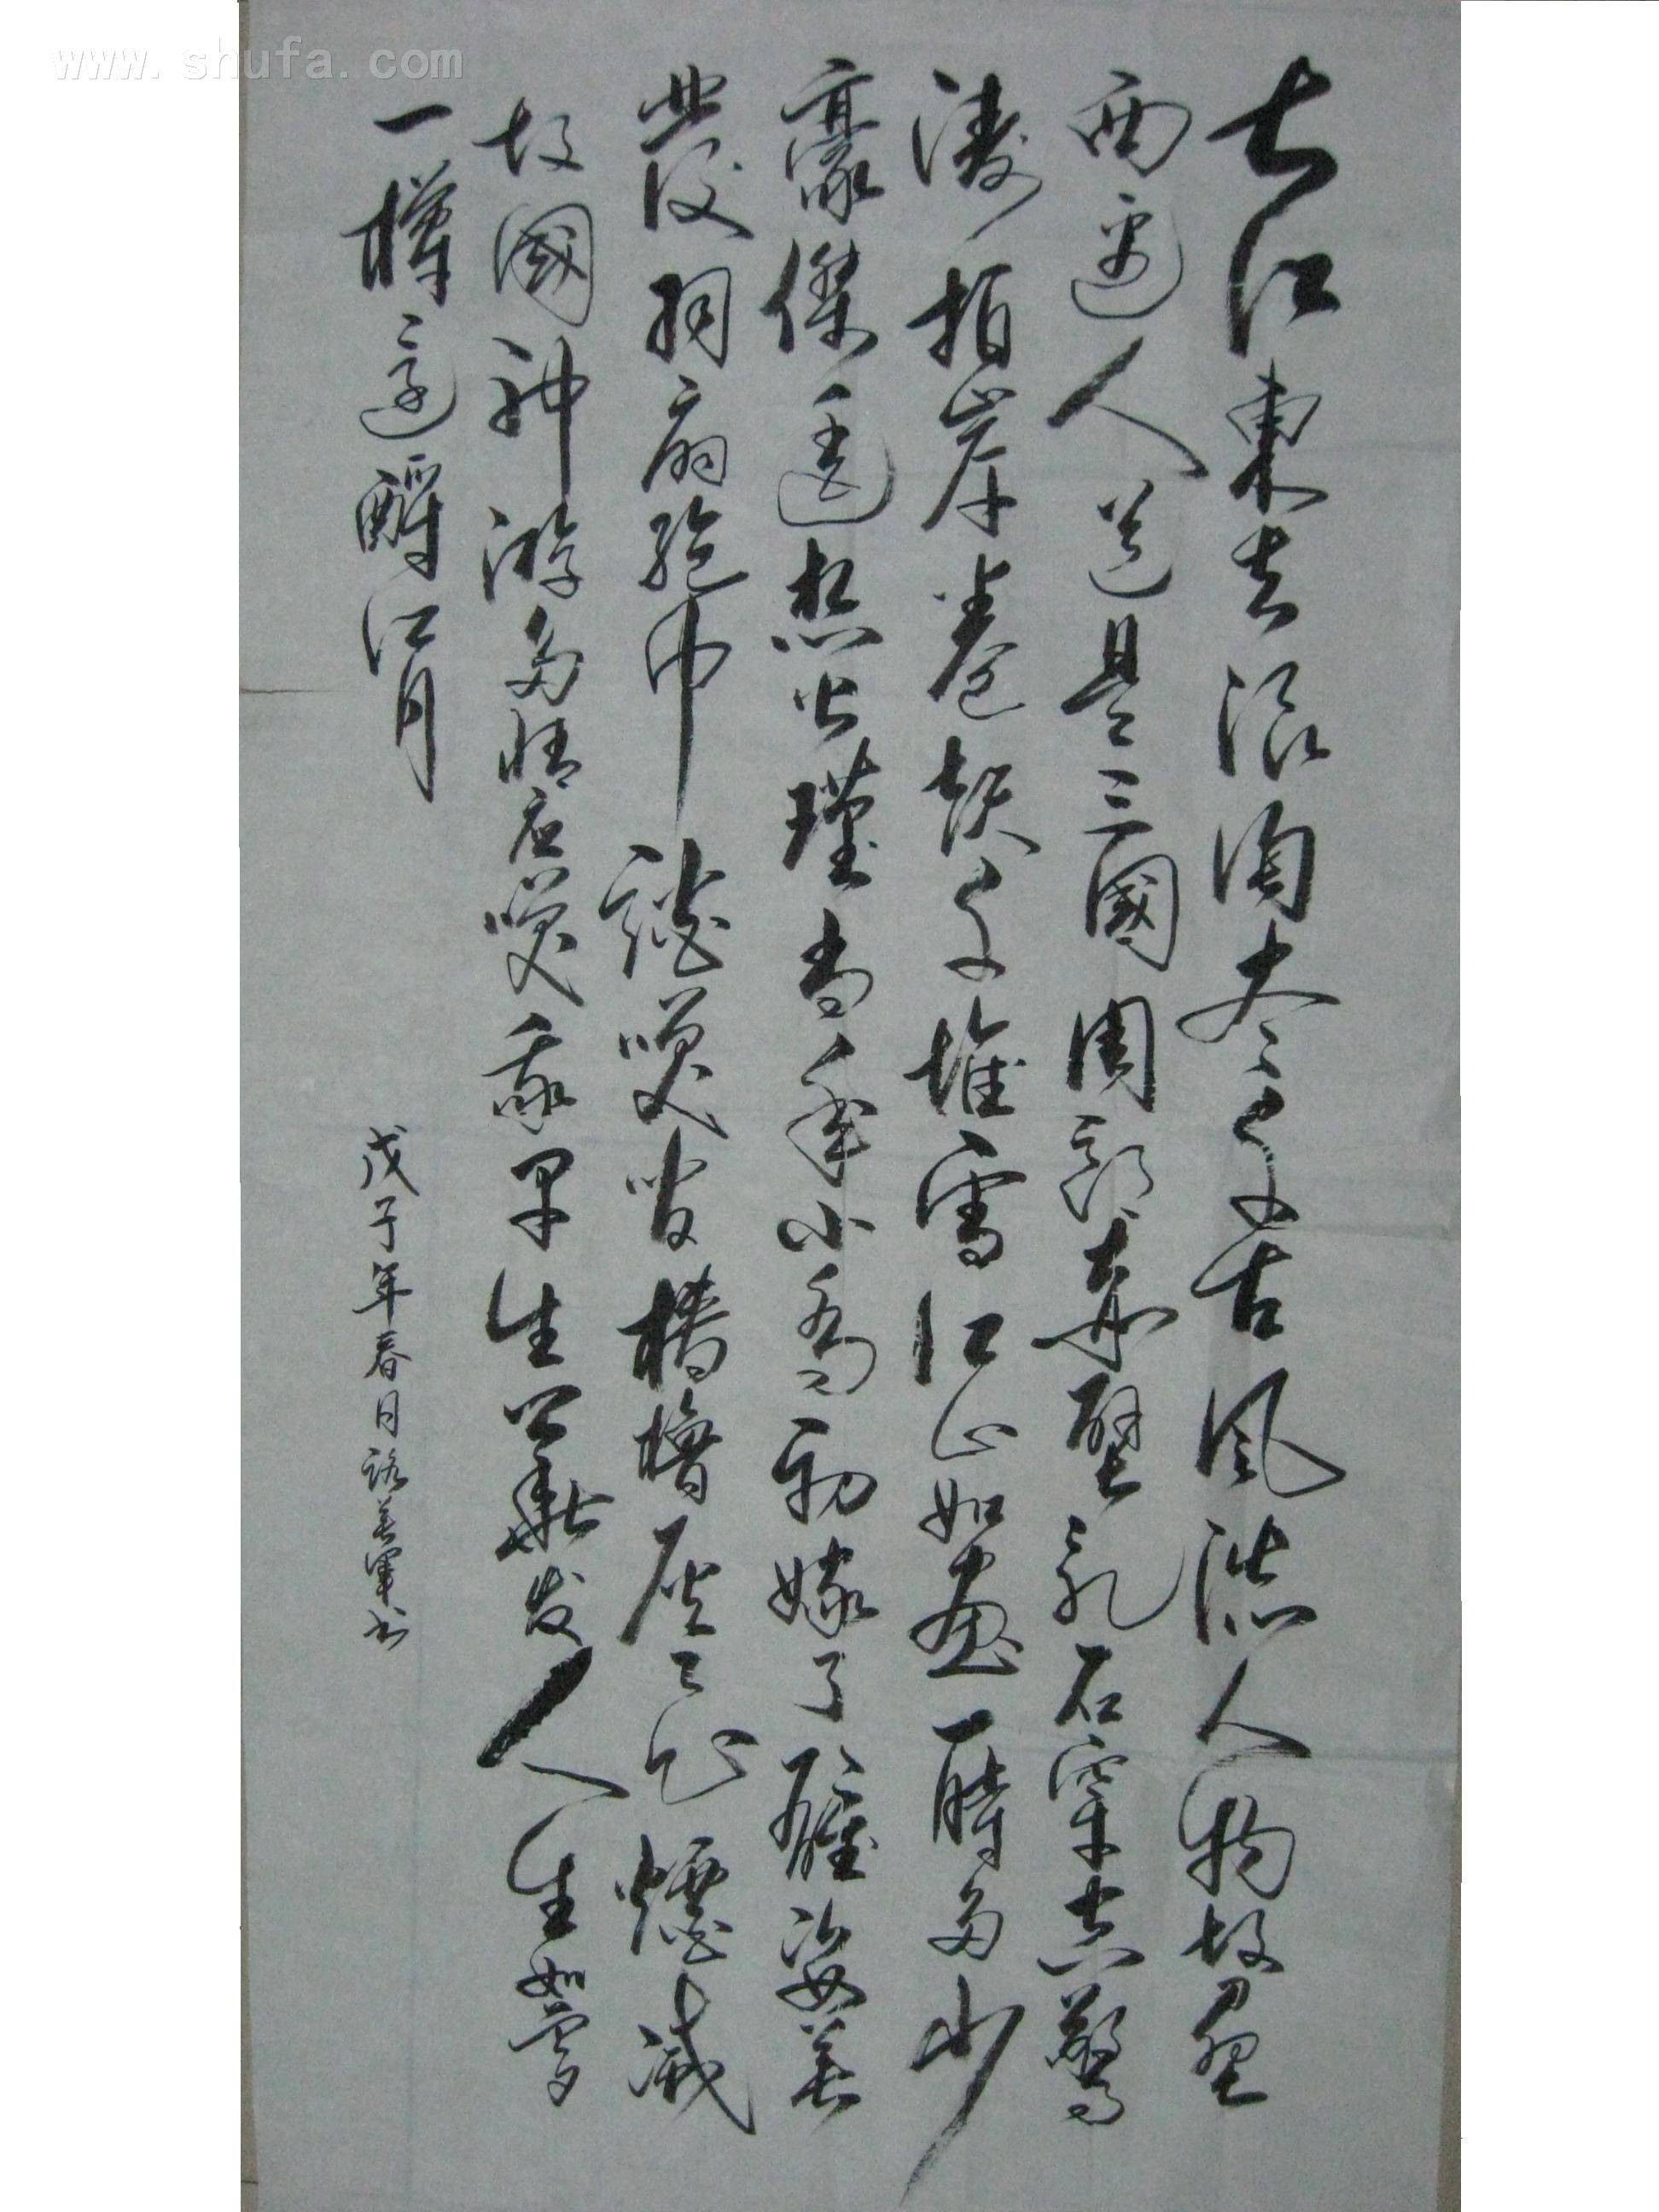 大江東去浪淘尽千古風流人物故壘
西邊人道是三國周郎赤壁乱石穿空驚
濤拍岸卷起千堆雪江山如畫一時多少
豪傑遥想公瑾當年小喬初嫁了雄姿英
發羽扇綸巾談笑間檣櫓灰飛煙滅
故國神游多情应笑我早生華发人生如夢
一樽還酹江月
戊子年春日
www.shufa.com